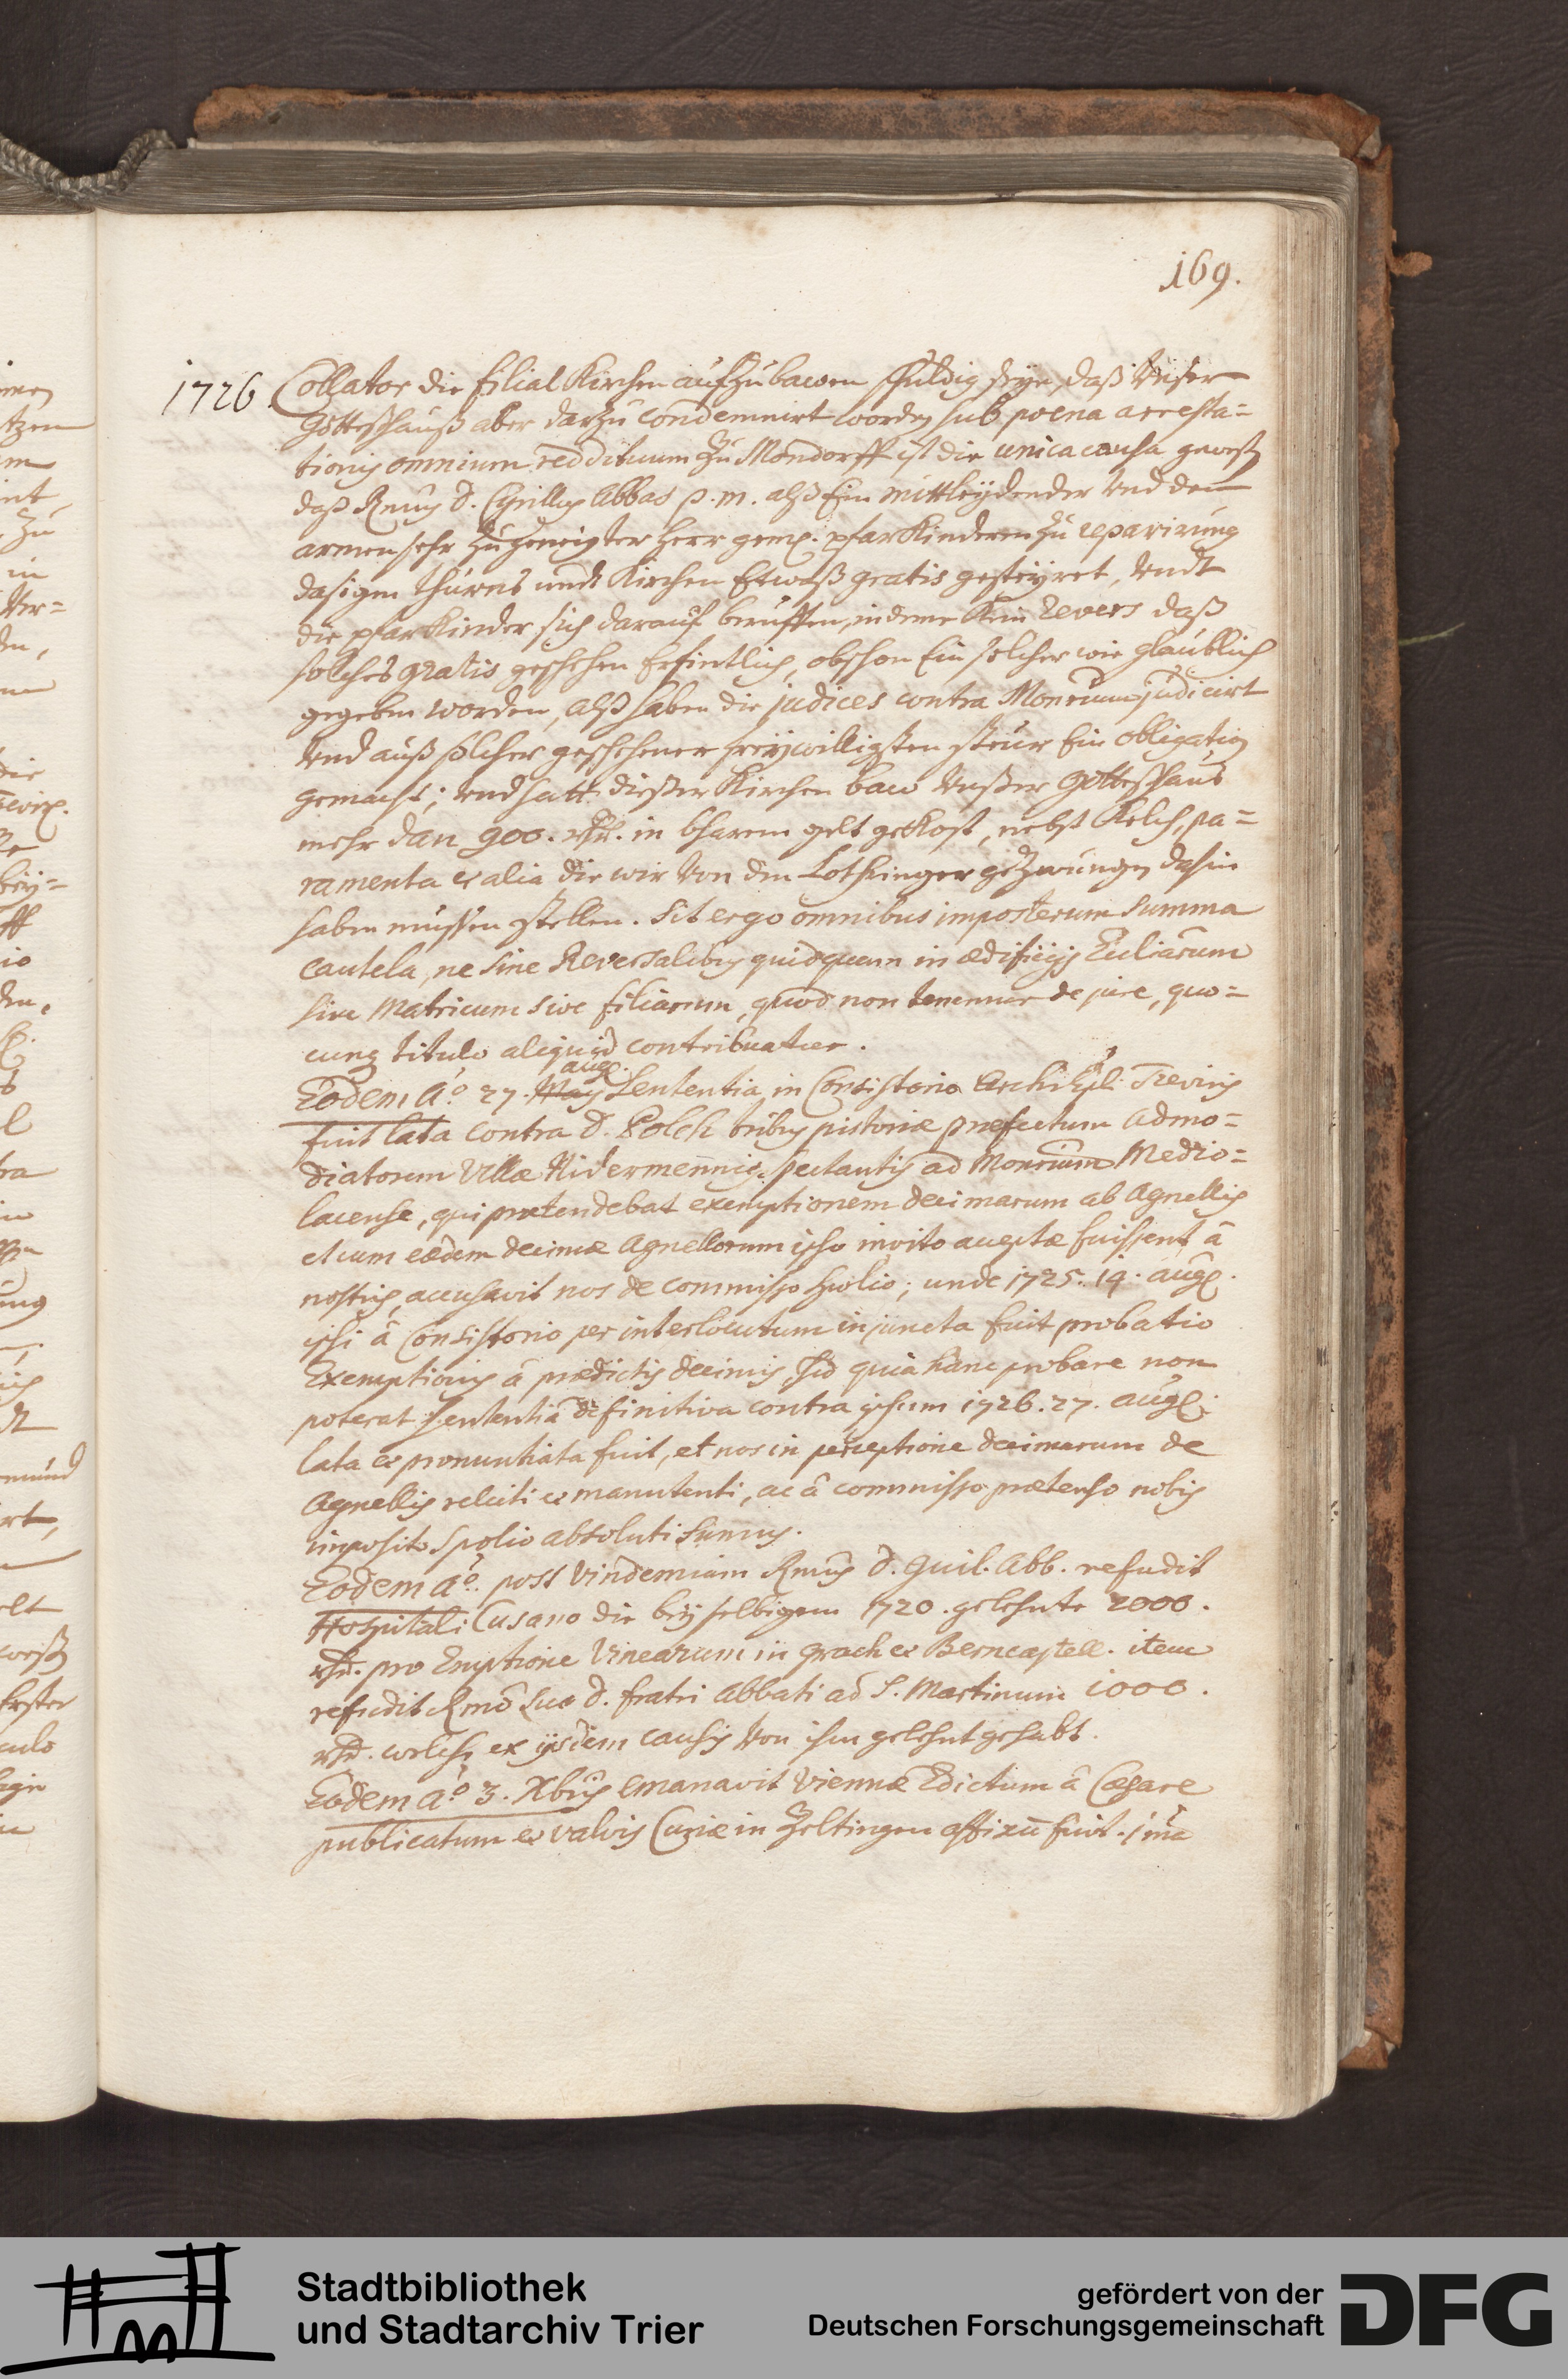 169.
1726. Collator die filial Kirchen aufzubawen schuldig seye, daß Unser
Gotteßhauß aber darzu condemnirt worden sub poena arresta=
tionis omnium reddituum zu Mondorff ist die unica causa geweß
daß Rmus d. Cyrillus Abbas p. m. alß Ein mittleydender Und den
armen sehr zugeneigter Herr gem. pfarKinderen zu reparirung
dasigen thurns undt Kirchen Etwaß gratis gesteyret, Undt
die pfarKinder sich darauf beruffen, indeme Kein revers daß
solches gratis geschehen Erfintlich, obschon Ein solcher wie glaublich
gegeben worden, alß haben die judices contra Monrium judicirt
Und auß solcher geschehener freywilligsten steur Ein obligation
gemacht; Und hatt dießer Kirchen baw Unßer Gotteßhaus
mehr dan 900. rhr. in bharem gelt geKost, nebst Kelch, pa=
ramenta et alia die wir Von den Lothringer gezwungen dahin
haben mußen stellen. Sit ergo omnibus imposterum summa
cautela, ne sine Reversalibus quidquam in ædificijs Eccliarum
sive Matricum sive filiarum, quod non tenemur de jure, quo=
cunq titulo aliquid contribuatur.
aug.
Eodem aō 27. May Sententia in Consistorio Archiepli Treviris
fuit lata contra d. Polch tribus pistoriæ præfectum admo=
diatorem Villæ Nidermennig spectantis ad Monrium Medio=
lacense, qui prætendebat exemptionem decimarum ab Agnellis
et cum eædem decimæ Agnellorum ipso invito acceptæ fuissent à
nostris, accusavit nos de commisso spolio; unde 1725. 14. aug.
ipsi à Consistorio per interlocutum injuncta fuit probatio
Exemptionis à prædictis decimis, sed quia hanc probare non
poterat sententia definitiva contra ipsum 1726. 27. aug.
lata et pronuntiata fuit, et nos in perceptione decimarum de
Agnellis relicti et manutenti, ac à commisso prætenso nobis
imposito spolio absoluti sumus.
Eodem aō post Vindemiam Rmus d. Guil. Abb. refudit
Hospitali Cusano die bey selbigem 1720. gelehnte 2000.
rhr. pro Emptione Vinearum in Grach et Berncastell. item
refudit Rmō suo d. fratri Abbati ad S. Martinum 1000.
rhr. welche ex ijsdem causis Von ihm gelehnt gehabt.
Eodem aō 3. Xbris emanavit Viennæ Edictum à Cæsare
publicatum et valvis Curiæ in Zeltingen affixū fuit. 1mo
Stadtbibliothek
und Stadtarchiv Trier
gefördert von der
Deutschen Forschungsgemeinschaft
DFG